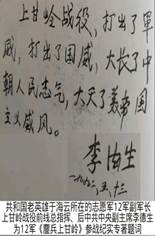 上甘岭战役，打出了军
威，打出了国威，大长了中
朝人民志气，大灭了美帝国
主义威风。
李德生
共和国老英雄于海云所在的志愿军12军副军长
上甘岭战役前线总指挥、后中共中央副主席李德生
为12军《鏖兵上甘岭》参战纪实专著题词